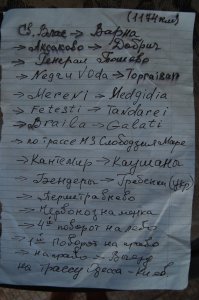 (1174 км)
Св. Влас → Варна
→ Аксаково → Добрич
→ Генерал Тошево
→ Negru Voda → Торгаівит
→ Mereni → Medgidia
→ Fetesti → Tandarei
→ Braila → Galati
→ по трассе М3 Слободзия Маре
→ Кантемир → Каушаны
→ Бендеры → Гребеники (укр)
→
→ Червонознаменка
→ 4й поворот на лево
→ 1й Поворот на право
→ на право →
на трассу Одесса - Киев